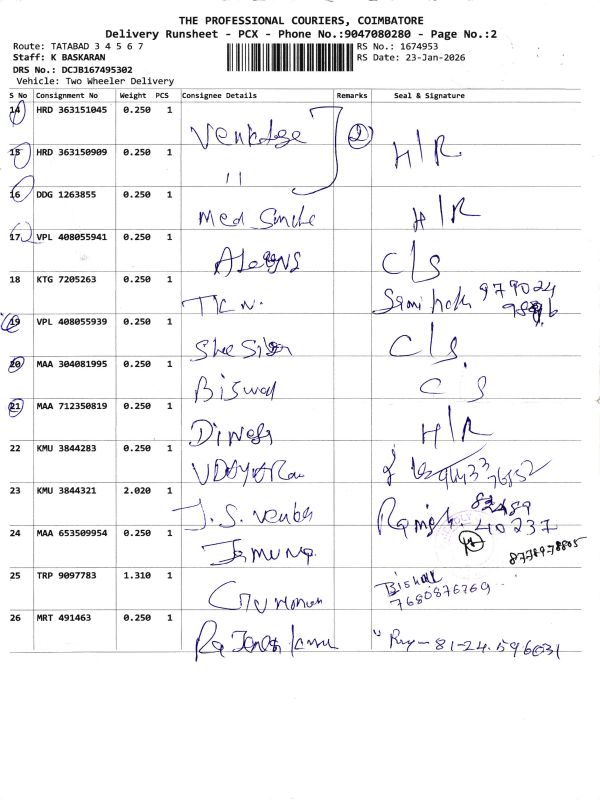 THE PROFESSIONAL COURIERS, COIMBATORE
Delivery Runsheet - PCX - Phone No.:9047080280 - Page No.:2
Route: TATABAD 3 4 5 6 7
Staff: K BASKARAN
DRS No.: DCJB167495302
Vehicle: Two Wheeler Delivery
RS No.: 1674953
RS Date: 23-Jan-2026
S No Consignment No Weight PCS Consignee Details Remarks Seal & Signature
14 HRD 363151045 0.250 1 2
15 HRD 363150909 0.250 1 " H/R
16 DDG 1263855 0.250 1 Med Smile H/R
17 VPL 408055941 0.250 1 C/s
18 KTG 7205263 0.250 1 979024
19 VPL 408055939 0.250 1 C/s
20 MAA 304081995 0.250 1 C/s
21 MAA 712350819 0.250 1 Dinesh H/R
22 KMU 3844283 0.250 1
23 KMU 3844321 2.020 1 J.S. 82489
40237
24 MAA 653509954 0.250 1 Jamuna. 8778978805
25 TRP 9097783 1.310 1 7680876769
26 MRT 491463 0.250 1 81-24.596031